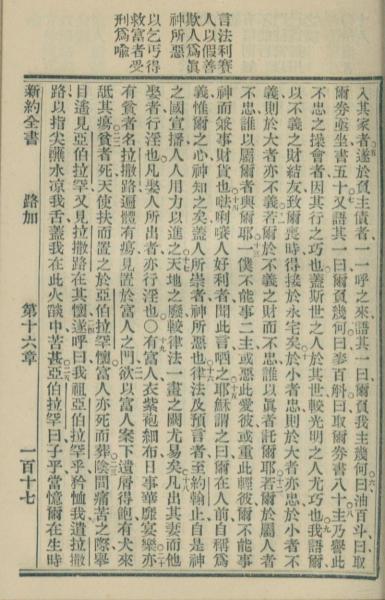 言法利賽
人以假善
欺人爲眞
神所惡
以乞丐得
救富者受
刑爲喩
入其家者遂於負主債者一一呼之來語其一曰爾負我主幾何曰油百斗曰取
爾券亟坐書五十又語其一曰爾負幾何曰麥百斛曰取爾券書八十主乃譽此
不忠之操會者因其行之巧也蓋斯世之人於其世較光明之人尤巧也我語爾
以不義之財結友致爾喪時得接於永宅矣於小者忠則於大者亦忠於小者不
義則於大者亦不義若爾於不義之財而不忠誰以眞者託爾耶若爾於屬人者
不忠誰以屬爾者與爾耶一僕不能事二主或惡此愛彼或重此輕彼爾不能事
神而兼事財貨也𠵽唎㗔人好利者聞此言哂之耶穌謂之曰爾在人前自稱爲
義惟爾之心神知之矣蓋人所崇者神所惡也律法及預言者至約翰止自是神
之國宣播人人用力以進之天地之廢較律法一畫之闕尤易矣凡出其妻而他
娶者行淫也凡娶人所出者亦行淫也○有富人衣紫袍細布日事華靡宴樂亦
有貧者名拉撒路遍體有瘍見置於富人之門欲以富人案下遺屑得飽有犬來
舐其瘍貧者死天使扶而置之於亞伯拉罕懷富人亦死而葬陰間痛苦之際舉
目遙見亞伯拉罕又見拉撒路在其懷遂呼曰我祖亞伯拉罕乎矜恤我遣拉撒
路以指尖蘸水凉我舌蓋我在此火燄中苦甚亞伯拉罕曰子乎當憶爾在生時
新約全書　路加　第十六章　一百十七